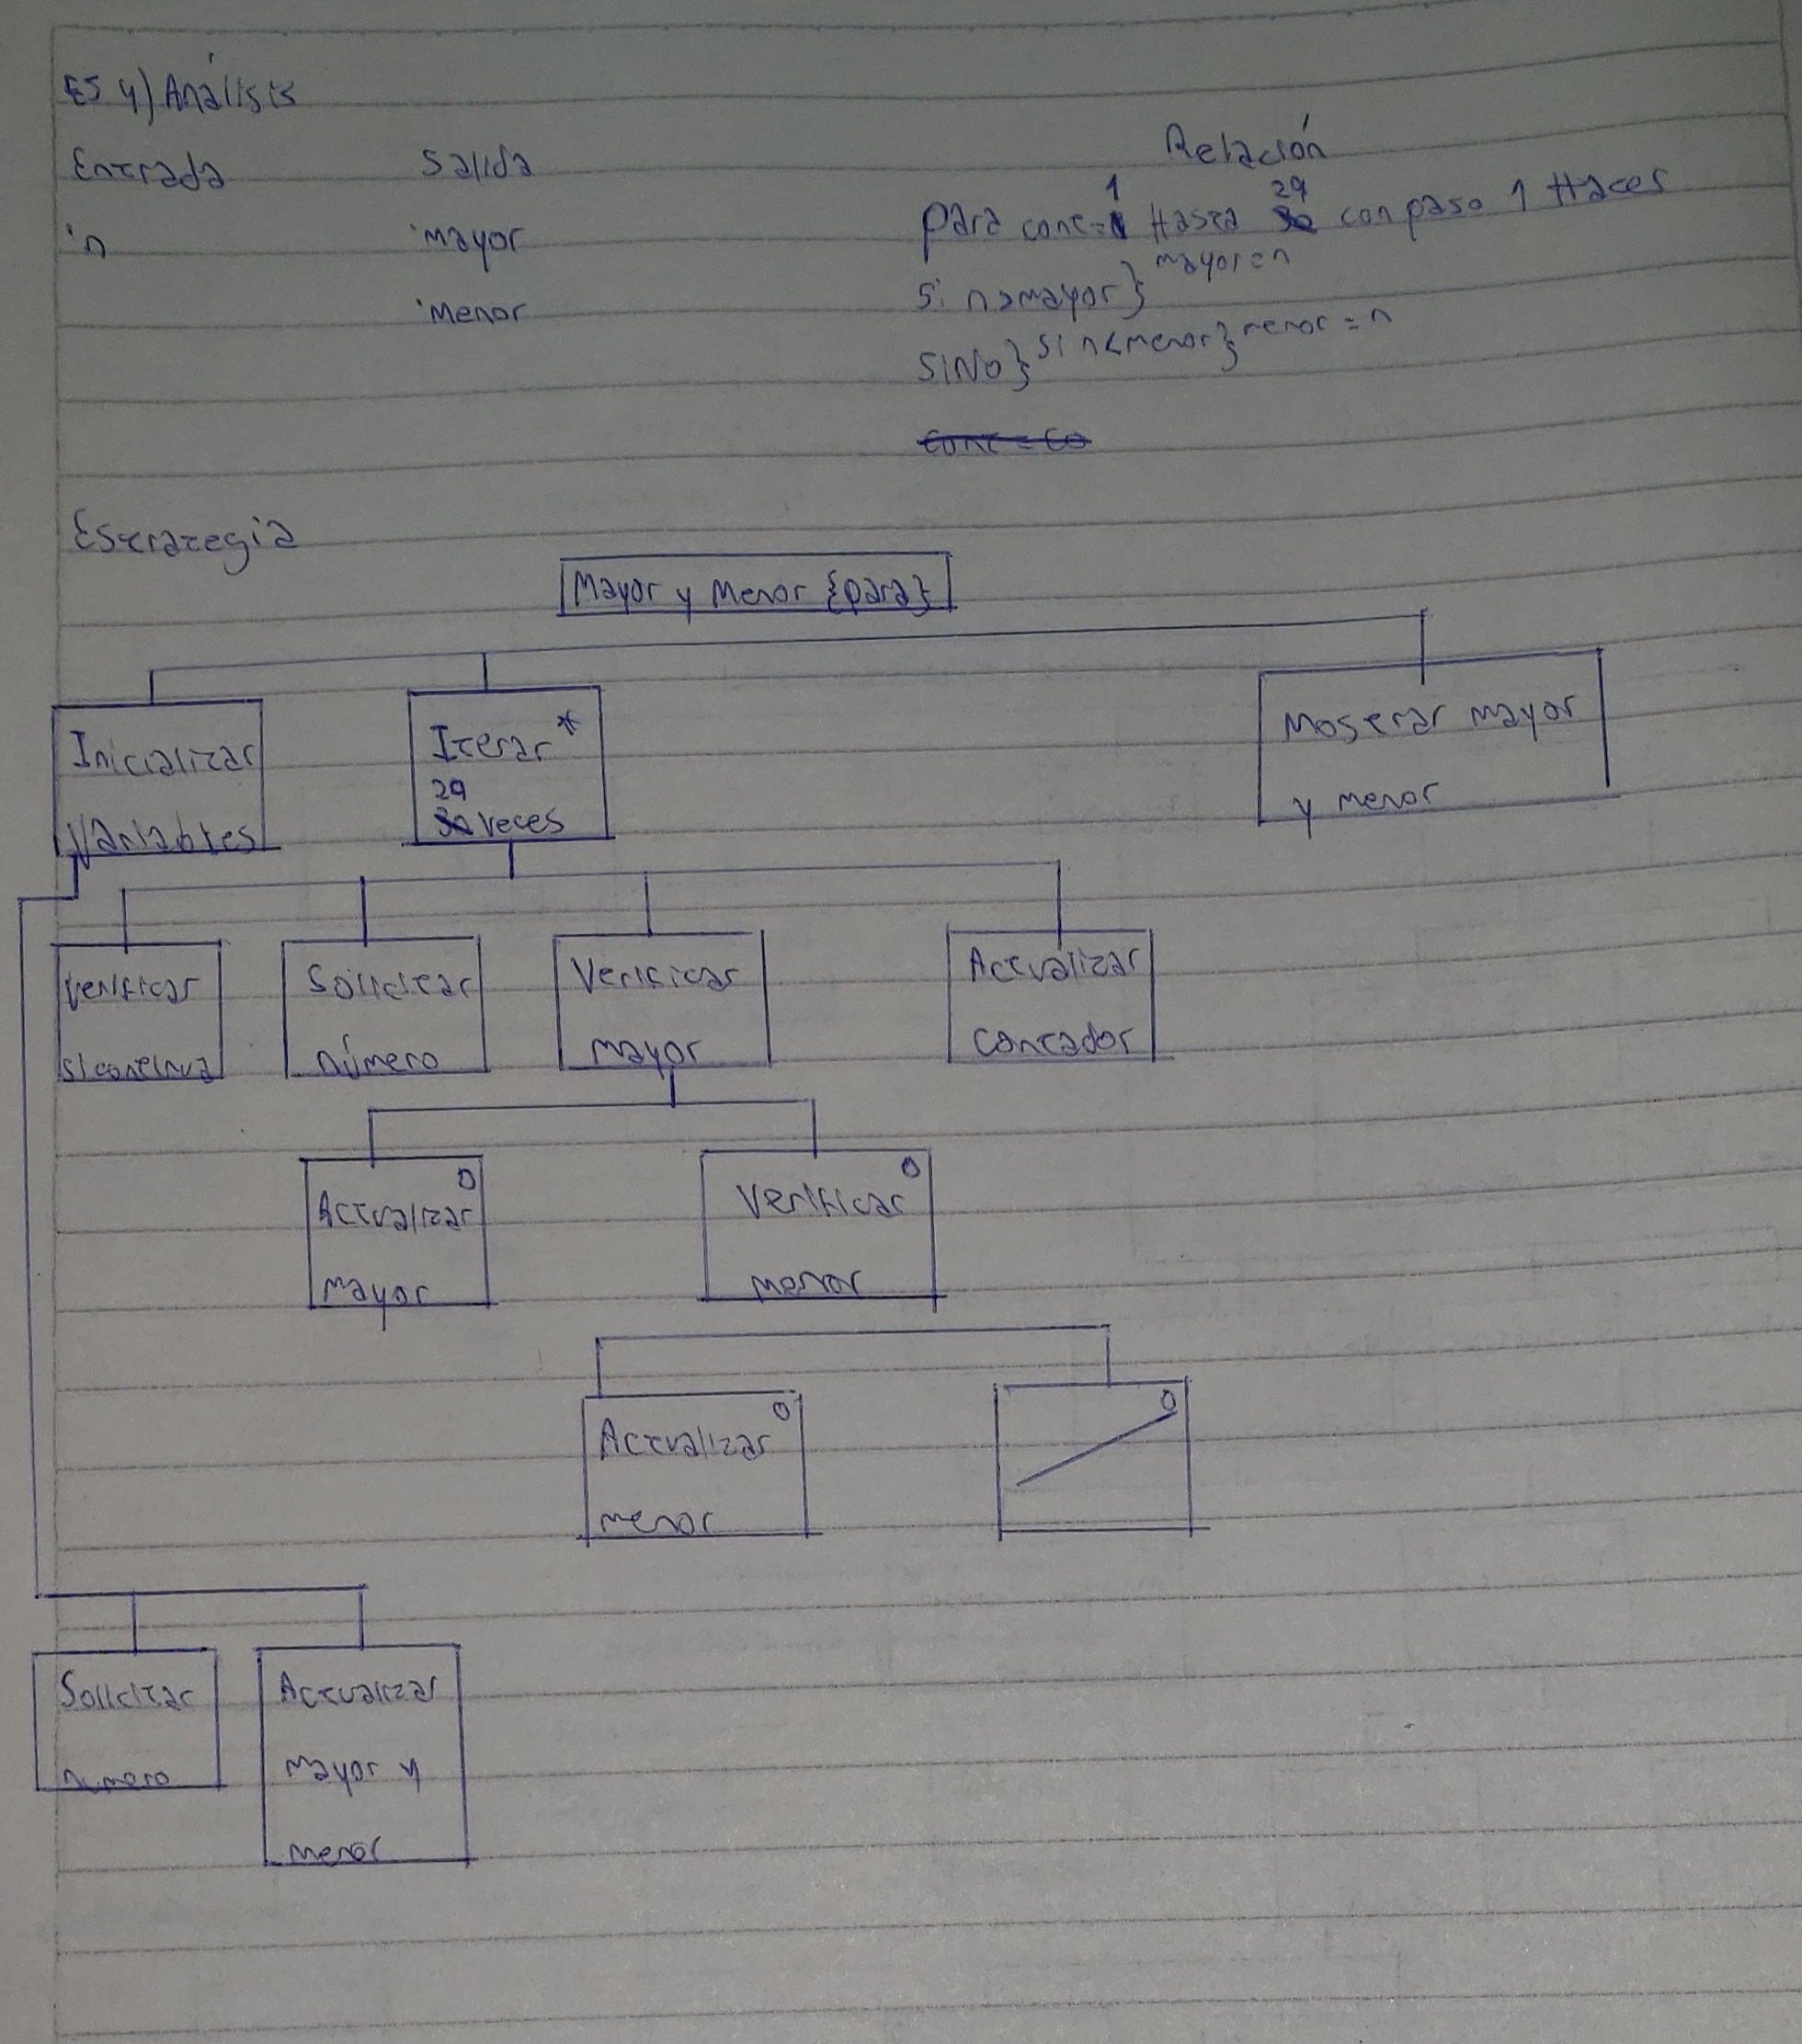 Ej 4) Análisis
Entrada Salida Relación
'n 'mayor para cont=1 Hasta 29 con paso 1 Hacer
'menor si n>mayor} mayor=n
SiNo} si n<menor} menor = n
Estrategia
Mayor y Menor {para}
Inicializar Variables
Iterar *
29
30 veces
Mostrar mayor
y menor
Verificar
si continua
Solicitar
número
Verificar
mayor
Actualizar
contador
Actualizar
mayor
Verificar
menor
Actualizar
menor
Solicitar
numero
Actualizar
mayor y
menor